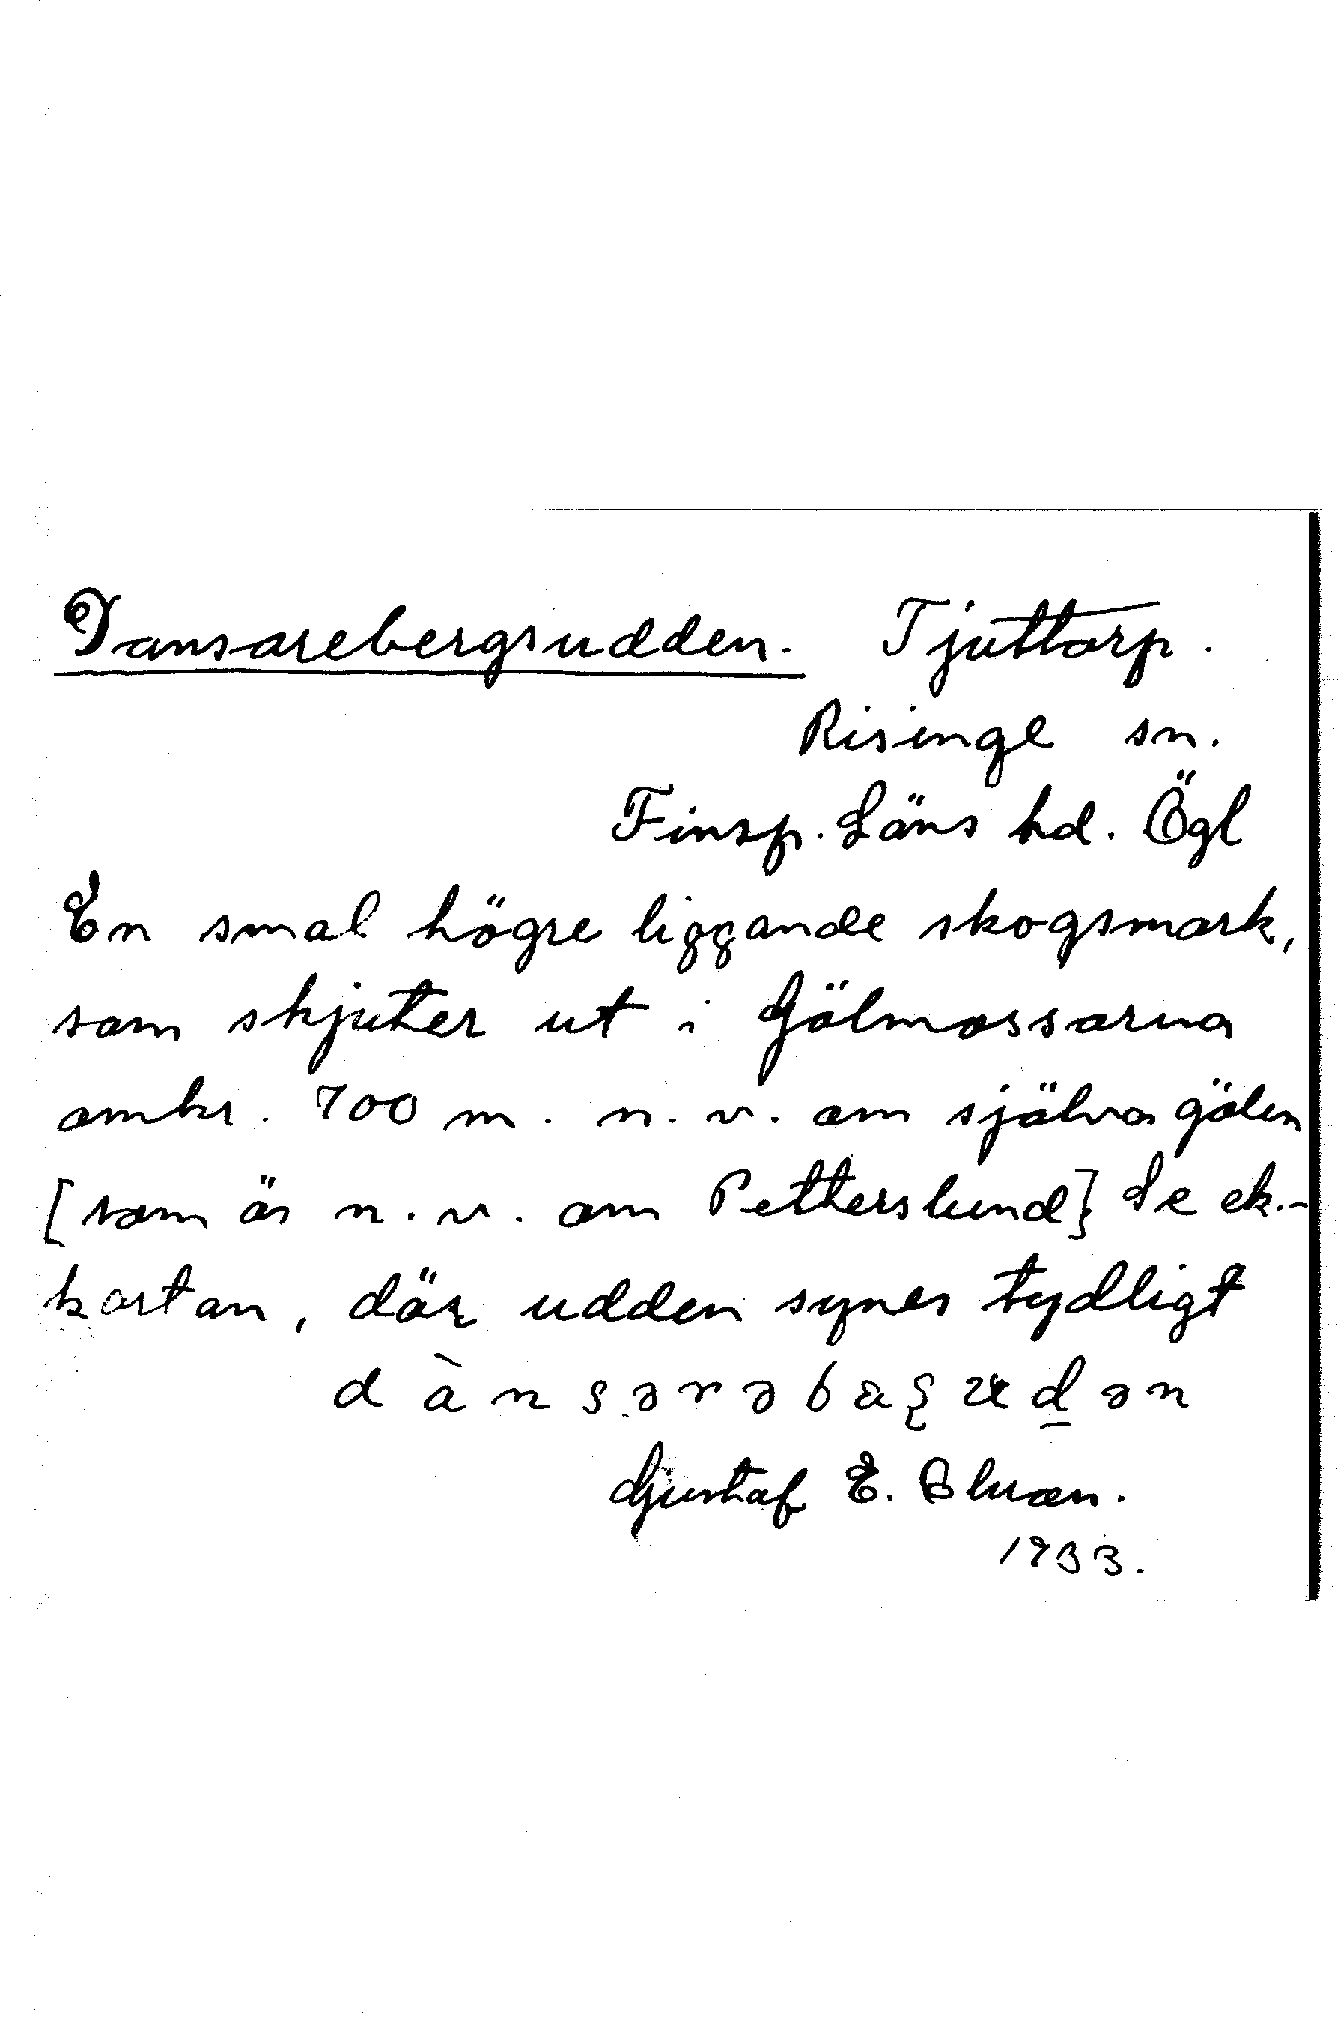 Dansarebergsudden. Tjuttorp.
Risinge sn.
Finsp. Läns hd. Ögl
En smal högre liggande skogsmark,
som skjuter ut i Gölmossarna
omkr. 700 m. n. v. om själva gölen
[som är n. v. om Petterslund] Se ek.-
kartan, där udden synes tydligt
Gustaf E.
1933.